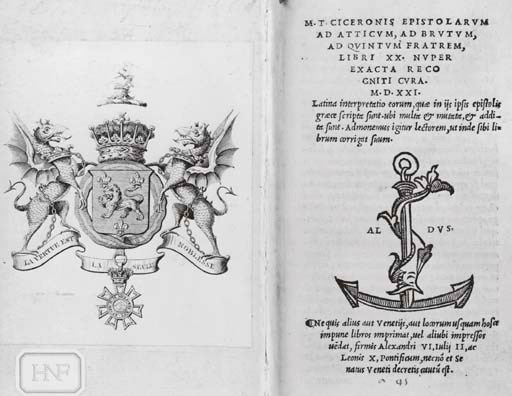 LA VERTUE EST
LA SEULE
NOBLESSE
HNF
M. T. CICERONIS EPISTOLARVM
AD ATTICVM, AD BRVTVM,
AD QVINTVM FRATREM,
LIBRI XX. NVPER
EXACTA RECO
GNITI CVRA.
M.D.XXI.
Latina interpretatio eorum, quæ in ijs ipsis epistolis
græce scripta sunt. ubi multa & mutata, & addi-
ta sunt. Admonemus igitur lectorem, ut inde sibi li-
brum corrigat suum.
AL DVS.
Ne quis alius aut Venetijs, aut locorum usquam hosce
impune libros imprimat, uel aliubi impressos
uēdat, firmis Alexandri VI, Iulij II, ac
Leonis X, Pontificum, necnō et Se
natus Veneti decretis cautū est.